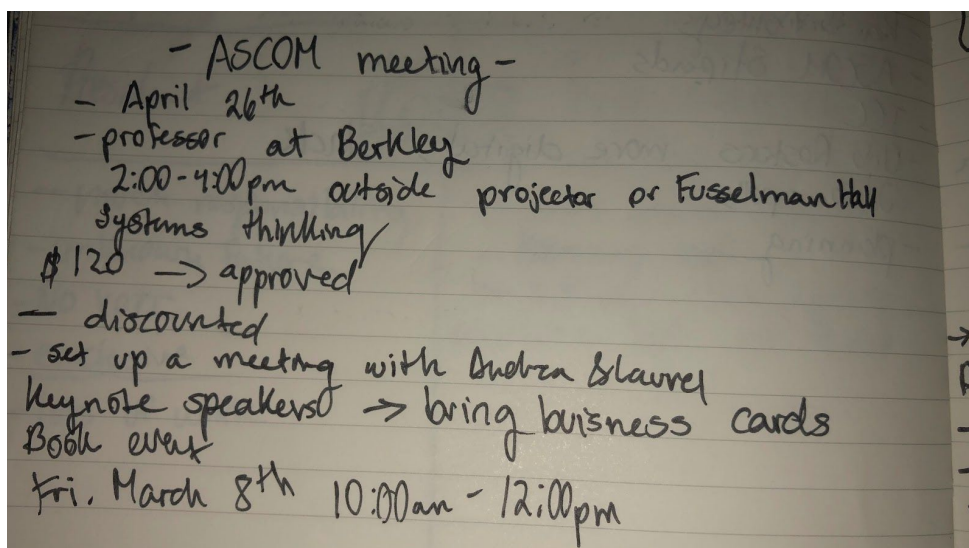 - ASCOM meeting -
- April 26th
- professor at Berkley
2:00-4:00pm outside projector or Fusselman Hall
Systems thinking
$120 → approved
— discounted
- set up a meeting with Andrea & Laurel
Keynote speakers → bring buisness cards
Book event
Fri. March 8th 10:00am - 12:00pm